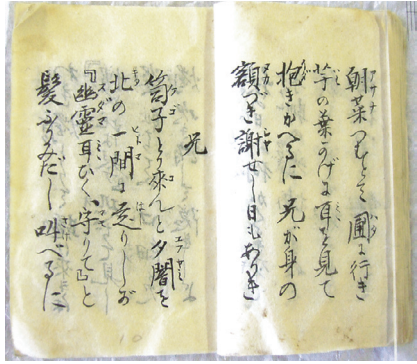 朝菜つむとて 圃に行き
芋の葉かげに耳を見て
抱きかへるに 兄が身の
額づき謝せし日もありき
兄
筍子とり來んと夕闇を
北の一間に走りしが
『幽靈耳ひく、守りて』と
髪ふりみだし 叫べるに